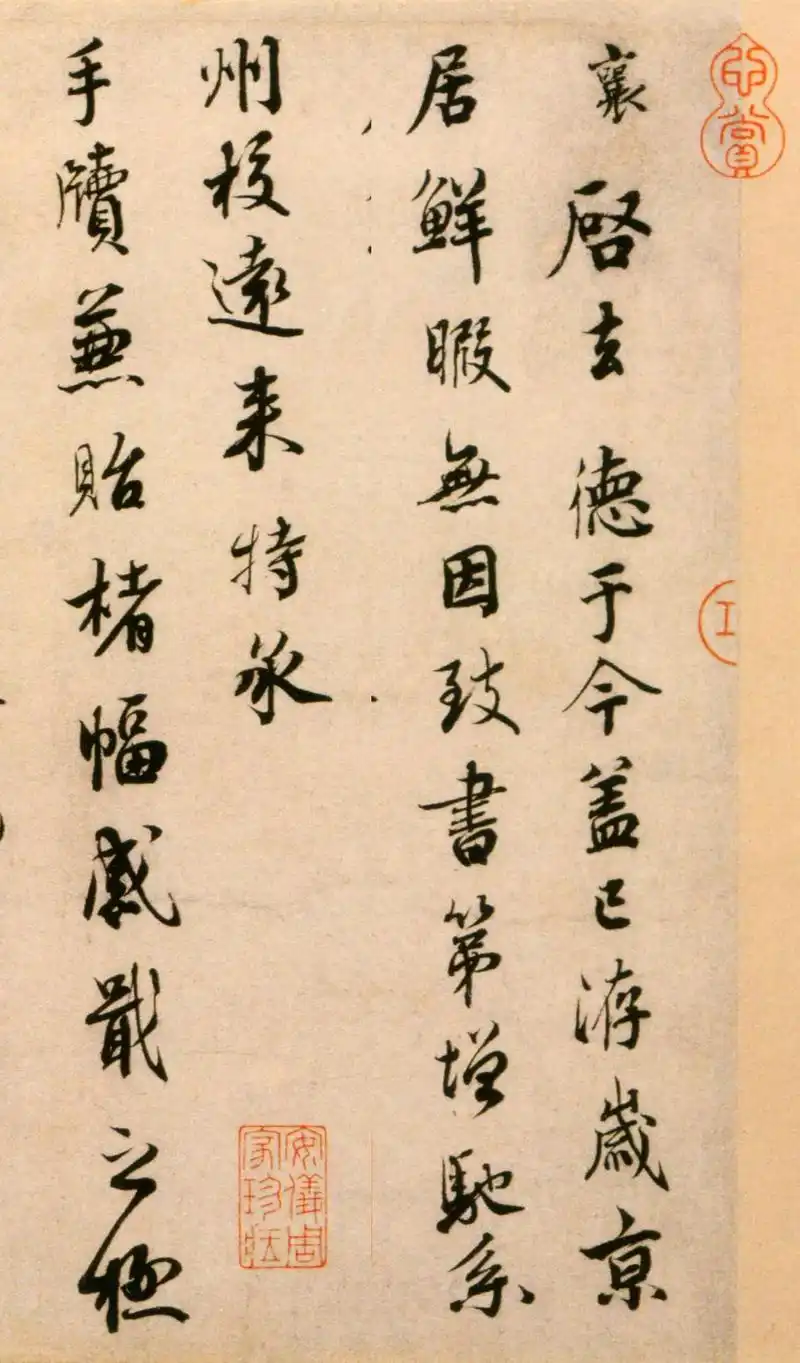 襄啓去德于今盖已洊歲京
居鮮暇無因致書第增馳系
州校遠来特承
手牘蕪貽楮幅感戢之極
賞
安儀周家珍藏